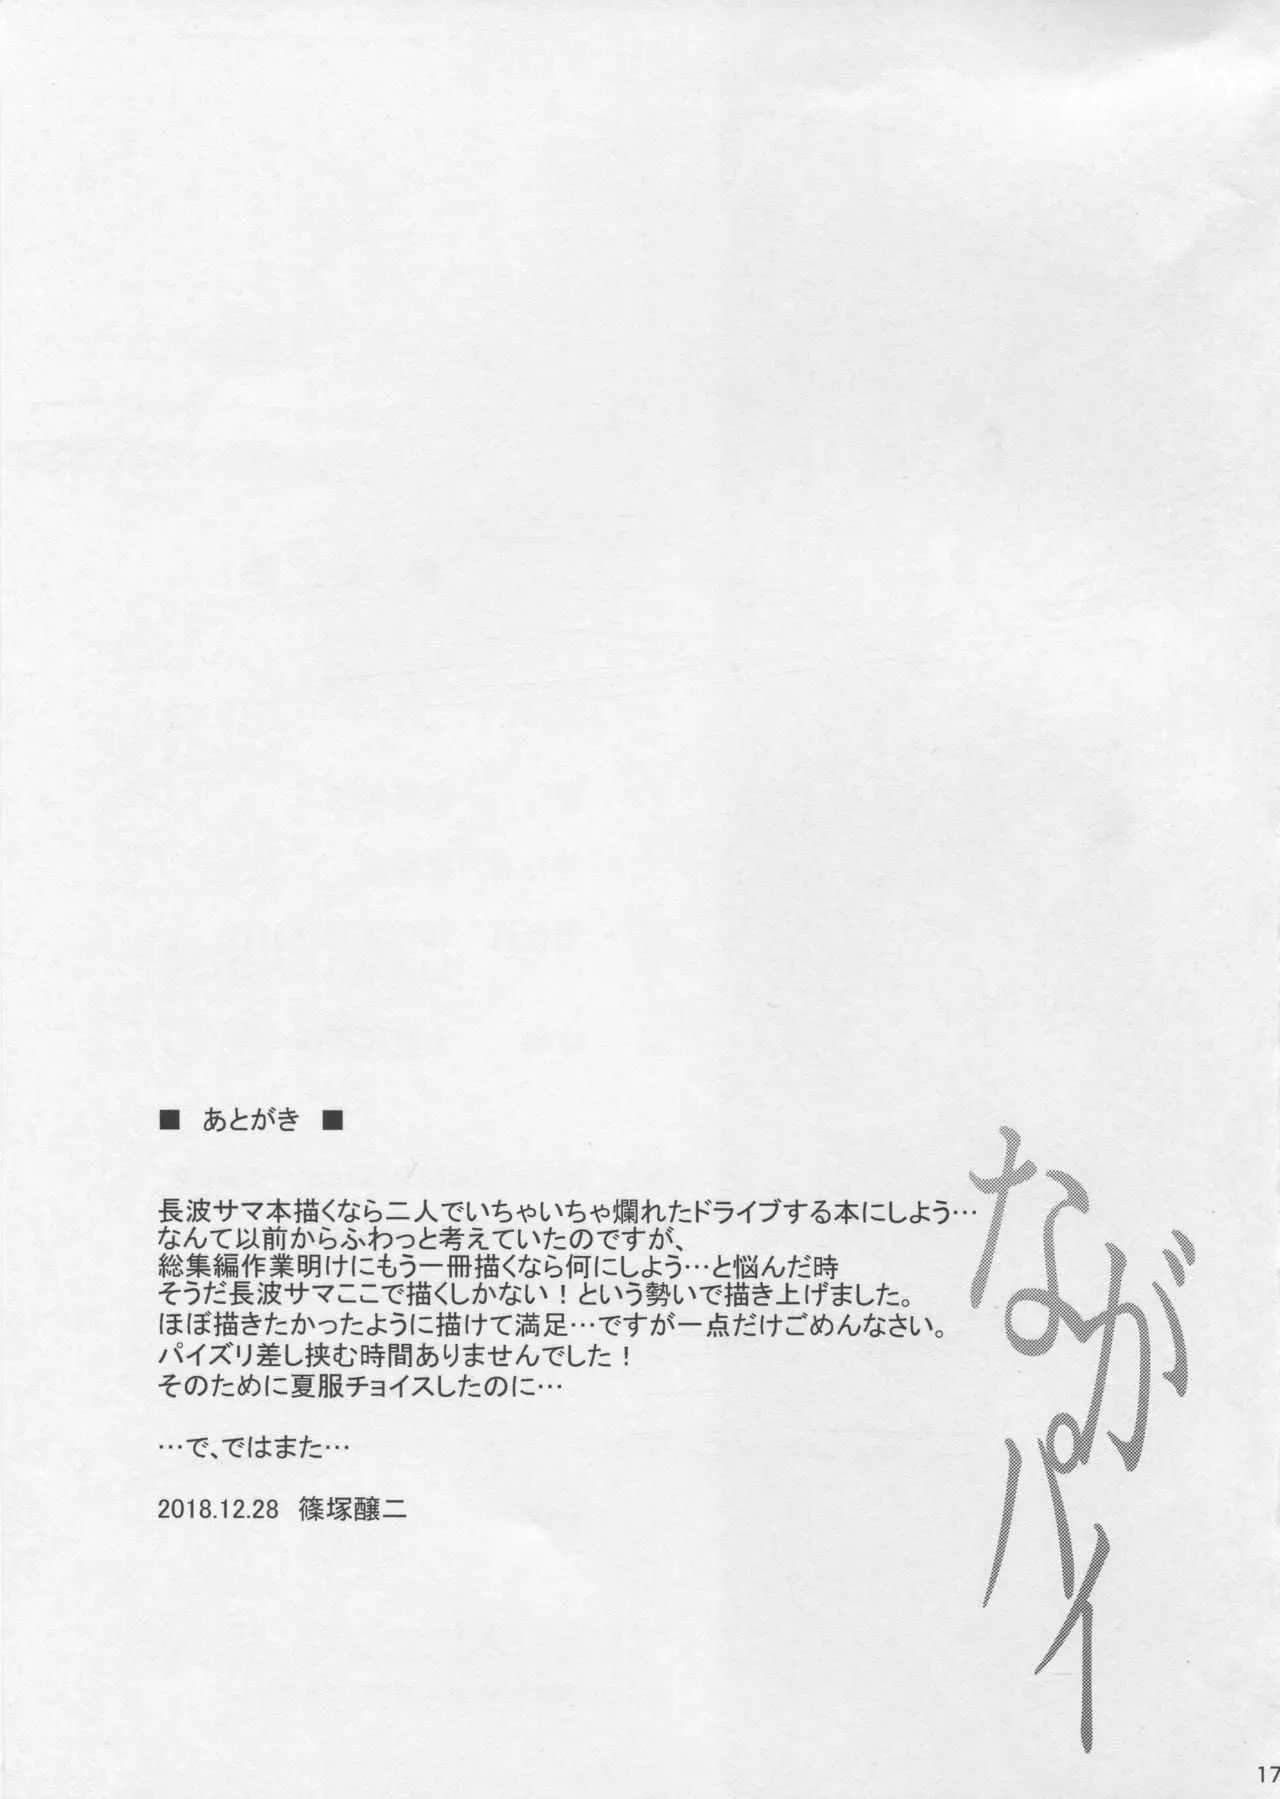 ■ あとがき ■
長波サマ本描くなら二人でいちゃいちゃ爛れたドライブする本にしよう…
なんて以前からふわっと考えていたのですが、
総集編作業明けにもう一冊描くなら何にしよう…と悩んだ時
そうだ長波サマここで描くしかない！という勢いで描き上げました。
ほぼ描きたかったように描けて満足…ですが一点だけごめんなさい。
パイズリ差し挟む時間ありませんでした！
そのために夏服チョイスしたのに…
…で、ではまた…
2018.12.28 篠塚醸二
ながパイ
17